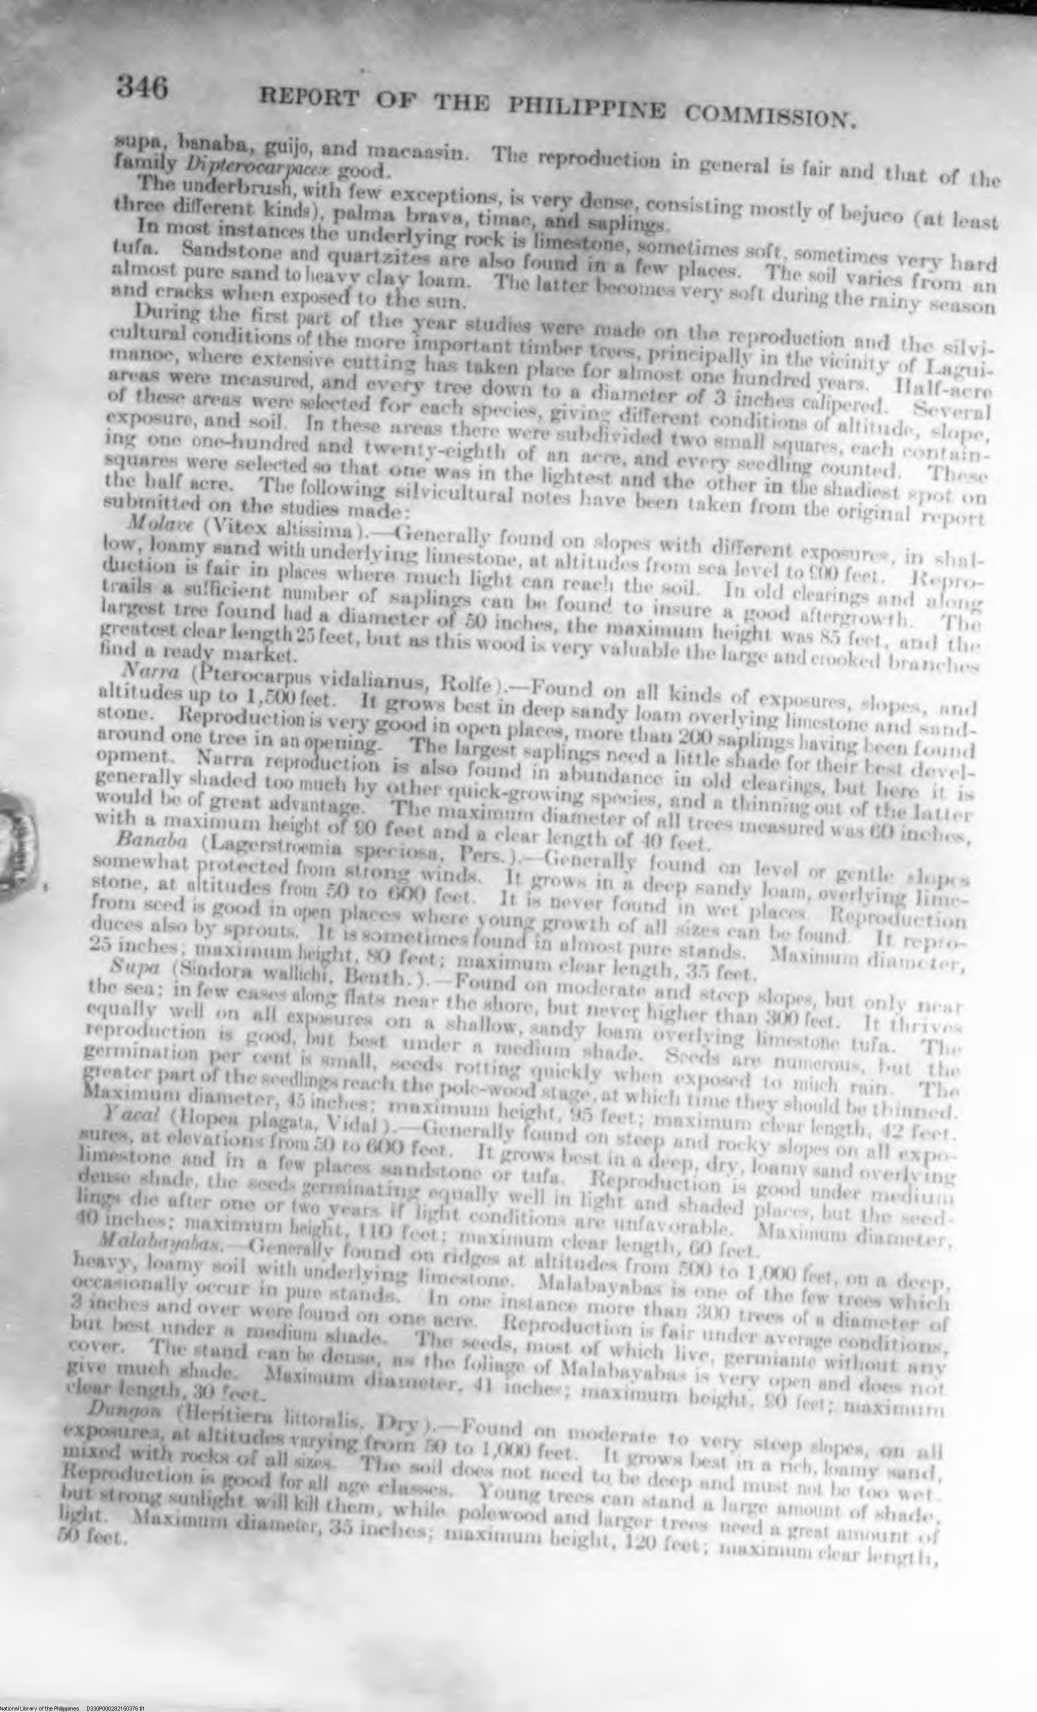 346 REPORT OF THE PHILIPPINE COMMISSION.
supa, banaba, guijo, and macaasin. The reproduction in general is fair and that of the
family Dipterocarpaceæ good.
The underbrush, with few exceptions, is very dense, consisting mostly of bejuco (at least
three different kinds), palma brava, timac, and saplings.
In most instances the underlying rock is limestone, sometimes soft, sometimes very hard
tufa. Sandstone and quartzites are also found in a few places. The soil varies from an
almost pure sand to heavy clay loam. The latter becomes very soft during the rainy season
and cracks when exposed to the sun.
During the first part of the year studies were made on the reproduction and the silvi-
cultural conditions of the more important timber trees, principally in the vicinity of Lagui-
manoc, where extensive cutting has taken place for almost one hundred years. Half-acre
areas were measured, and every tree down to a diameter of 3 inches calipered. Several
of these areas were selected for each species, giving different conditions of altitude, slope,
exposure, and soil. In these areas there were subdivided two small squares, each contain-
ing one one-hundred and twenty-eighth of an acre, and every seedling counted. These
squares were selected so that one was in the lightest and the other in the shadiest spot on
the half acre. The following silvicultural notes have been taken from the original report
submitted on the studies made:
Molave (Vitex altissima).—Generally found on slopes with different exposures, in shal-
low, loamy sand with underlying limestone, at altitudes from sea level to 900 feet. Repro-
duction is fair in places where much light can reach the soil. In old clearings and along
trails a sufficient number of saplings can be found to insure a good aftergrowth. The
largest tree found had a diameter of 50 inches, the maximum height was 85 feet, and the
greatest clear length 25 feet, but as this wood is very valuable the large and crooked branches
find a ready market.
Narra (Pterocarpus vidalianus, Rolfe).—Found on all kinds of exposures, slopes, and
altitudes up to 1,500 feet. It grows best in deep sandy loam overlying limestone and sand-
stone. Reproduction is very good in open places, more than 200 saplings having been found
around one tree in an opening. The largest saplings need a little shade for their best devel-
opment. Narra reproduction is also found in abundance in old clearings, but here it is
generally shaded too much by other quick-growing species, and a thinning out of the latter
would be of great advantage. The maximum diameter of all trees measured was 60 inches,
with a maximum height of 90 feet and a clear length of 40 feet.
Banaba (Lagerstroemia speciosa, Pers.).—Generally found on level or gentle slopes
somewhat protected from strong winds. It grows in a deep sandy loam, overlying lime-
stone, at altitudes from 50 to 600 feet. It is never found in wet places. Reproduction
from seed is good in open places where young growth of all sizes can be found. It repro-
duces also by sprouts. It is sometimes found in almost pure stands. Maximum diameter,
25 inches; maximum height, 80 feet; maximum clear length, 35 feet.
Supa (Sindora wallichi, Benth.).—Found on moderate and steep slopes, but only near
the sea; in few cases along flats near the shore, but never higher than 300 feet. It thrives
equally well on all exposures on a shallow, sandy loam overlying limestone tufa. The
reproduction is good, but best under a medium shade. Seeds are numerous, but the
germination per cent is small, seeds rotting quickly when exposed to much rain. The
greater part of the seedlings reach the pole-wood stage, at which time they should be thinned.
Maximum diameter, 45 inches; maximum height, 95 feet; maximum clear length, 42 feet.
Yacal (Hopea plagata, Vidal).—Generally found on steep and rocky slopes on all expo-
sures, at elevations from 50 to 600 feet. It grows best in a deep, dry, loamy sand overlying
limestone and in a few places sandstone or tufa. Reproduction is good under medium
dense shade, the seeds germinating equally well in light and shaded places, but the seed-
lings die after one or two years if light conditions are unfavorable. Maximum diameter,
40 inches; maximum height, 110 feet; maximum clear length, 60 feet.
Malabayabas.—Generally found on ridges at altitudes from 500 to 1,000 feet, on a deep,
heavy, loamy soil with underlying limestone. Malabayabas is one of the few trees which
occasionally occur in pure stands. In one instance more than 300 trees of a diameter of
3 inches and over were found on one acre. Reproduction is fair under average conditions,
but best under a medium shade. The seeds, most of which live, germiante without any
cover. The stand can be dense, as the foliage of Malabayabas is very open and does not
give much shade. Maximum diameter, 41 inches; maximum height, 90 feet; maximum
clear length, 30 feet.
Dungon (Heritiera littoralis, Dry).—Found on moderate to very steep slopes, on all
exposures, at altitudes varying from 50 to 1,000 feet. It grows best in a rich, loamy sand,
mixed with rocks of all sizes. The soil does not need to be deep and must not be too wet.
Reproduction is good for all age classes. Young trees can stand a large amount of shade,
but strong sunlight will kill them, while polewood and larger trees need a great amount of
light. Maximum diameter, 35 inches; maximum height, 120 feet; maximum clear length,
50 feet.
National Library of the Philippines D330P000282150376.tif